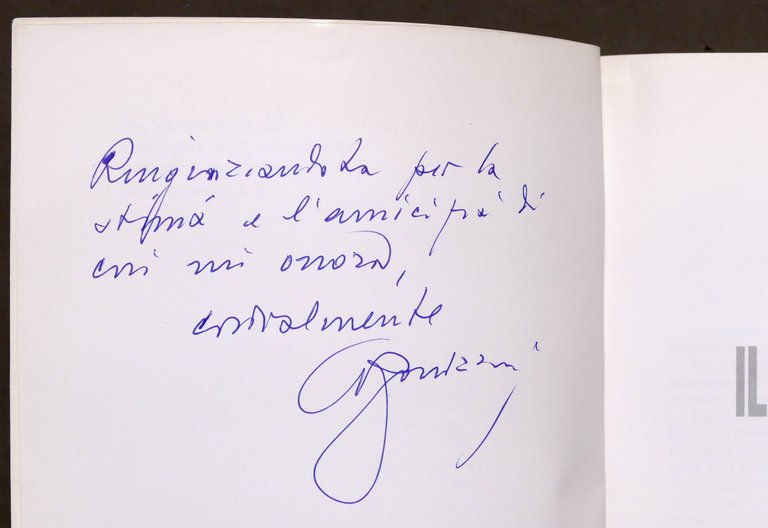 RingraziandoLa per la
stima e l'amicizia di
cui mi onora,
cordialmente
IL